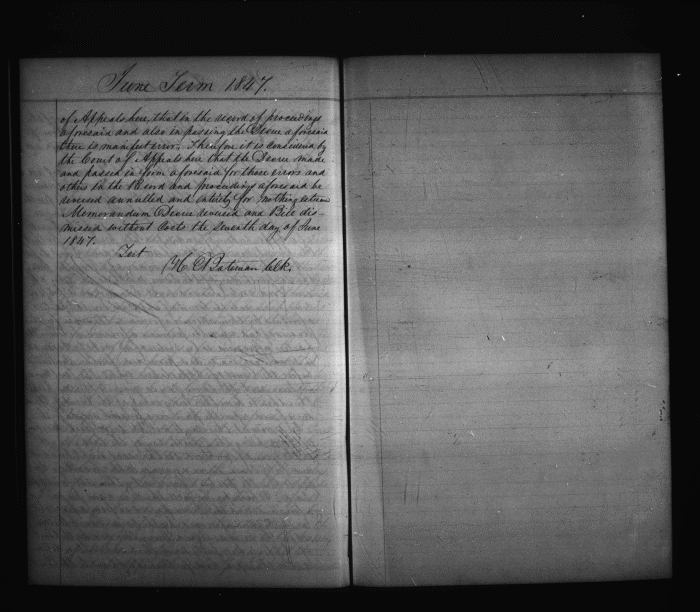 June Term 1847.
of Appeals here, that in the record of proceedings
aforesaid and also in passing the Decree aforesaid
there is manifest error; Therefore it is considered by
the Court of Appeals here that the Decree made
and passed in form aforesaid for those errors and
others in the Record and proceedings aforesaid be
reversed annulled and entirely for nothing
Memorandum Decree reversed and Bill dis-
missed without Costs the Seventh day of June
1847.
Test
Bateman Clk.